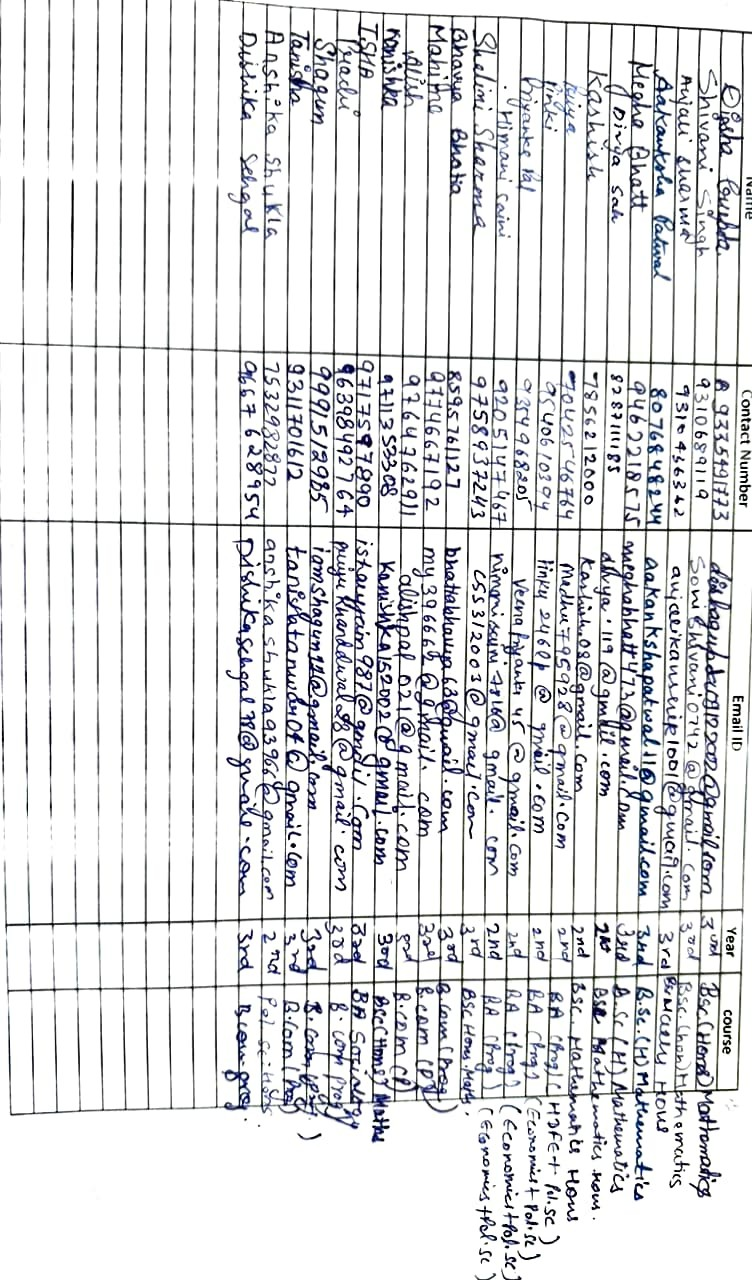 Name Contact Number Email ID Year course
Disha Gupta 9335491773 3rd Bsc(Hons) Mathematics
Shivani Singh 9310689119 Sonishivani0742@gmail.com 3rd Bsc.(hon) Mathematics
Anjali sharma 9310436342 3rd Hons
Aakanksha Patwal 8076848244 aakankshapatwal11@gmail.com 3rd B.Sc.(H) Mathematics
Megha Bhatt 9462218575 meghabhatt473@gmail.com 3rd B.Sc (H) Mathematics
Divya sah 8287111185 divya.119@gmail.com 2nd Bsc Mathematics Hons.
Kashish 7856212000 Kashish08@gmail.com 2nd BSC. Mathematics Hons
7042546764 Madhu795928@gmail.com 2nd BA (Prog) (HDFE + Pol.sc)
Rinki 9540610394 linky2460p@gmail.com 2nd BA (Prog) (Economics + Pol.sc)
Priyanka Pal 9354968205 Veenapriyanka45@gmail.com 2nd BA (Prog) (Economics + Pol.sc)
Himani saini 9205147467 nimmisaini7816@gmail.com 2nd BA (Prog) (Economics + Pol.sc)
Shalini Sharma 9758937243 css312003@gmail.com 3rd BSc Hons. Maths.
Bhavya Bhatia 8595761127 bhatiabhavya63@gmail.com 3rd B.com (Prog)
Mahima 9774667192 my396665@gmail.com 3rd B.com (P)
Alish 9764762911 alishpal021@gmail.com B.com (P)
Kanishka 9711353308 Kanishka152002@gmail.com 3rd BSc (Hons) Maths
ISHA 9717597890 ishayjain987@gmail.com 3rd BA Sociology
Prachi 9639849276 4 @gmail.com 3rd B.com prog
Shagun 9991512985 iamshagun11@gmail.com 3rd B.com
Tanisha 9311701612 tanishatanwar04@gmail.com 3rd B.com (Prog)
Anshika Shukla 7532982872 anshikashukla9396@gmail.com 2nd Pol sc. Hons
Dishika Sehgal 9667628954 Dishikasehgal78@gmail.com 3rd B.com prog.